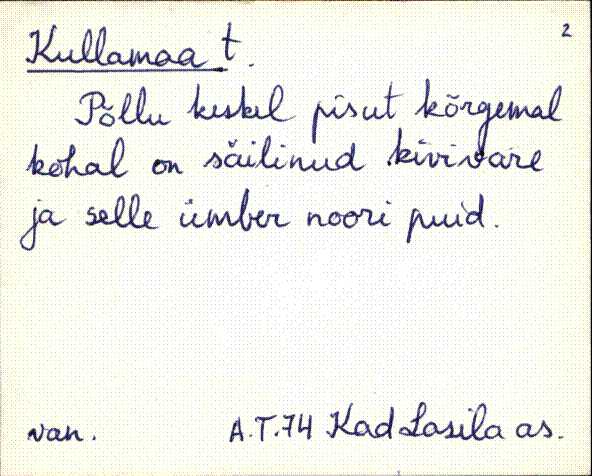 2
Kullamaa t.
Põllu keskel pisut kõrgemal
kohal on säilinud kivivare
ja selle ümber noori puid.
van. A.T.74 Kad Lasila as.